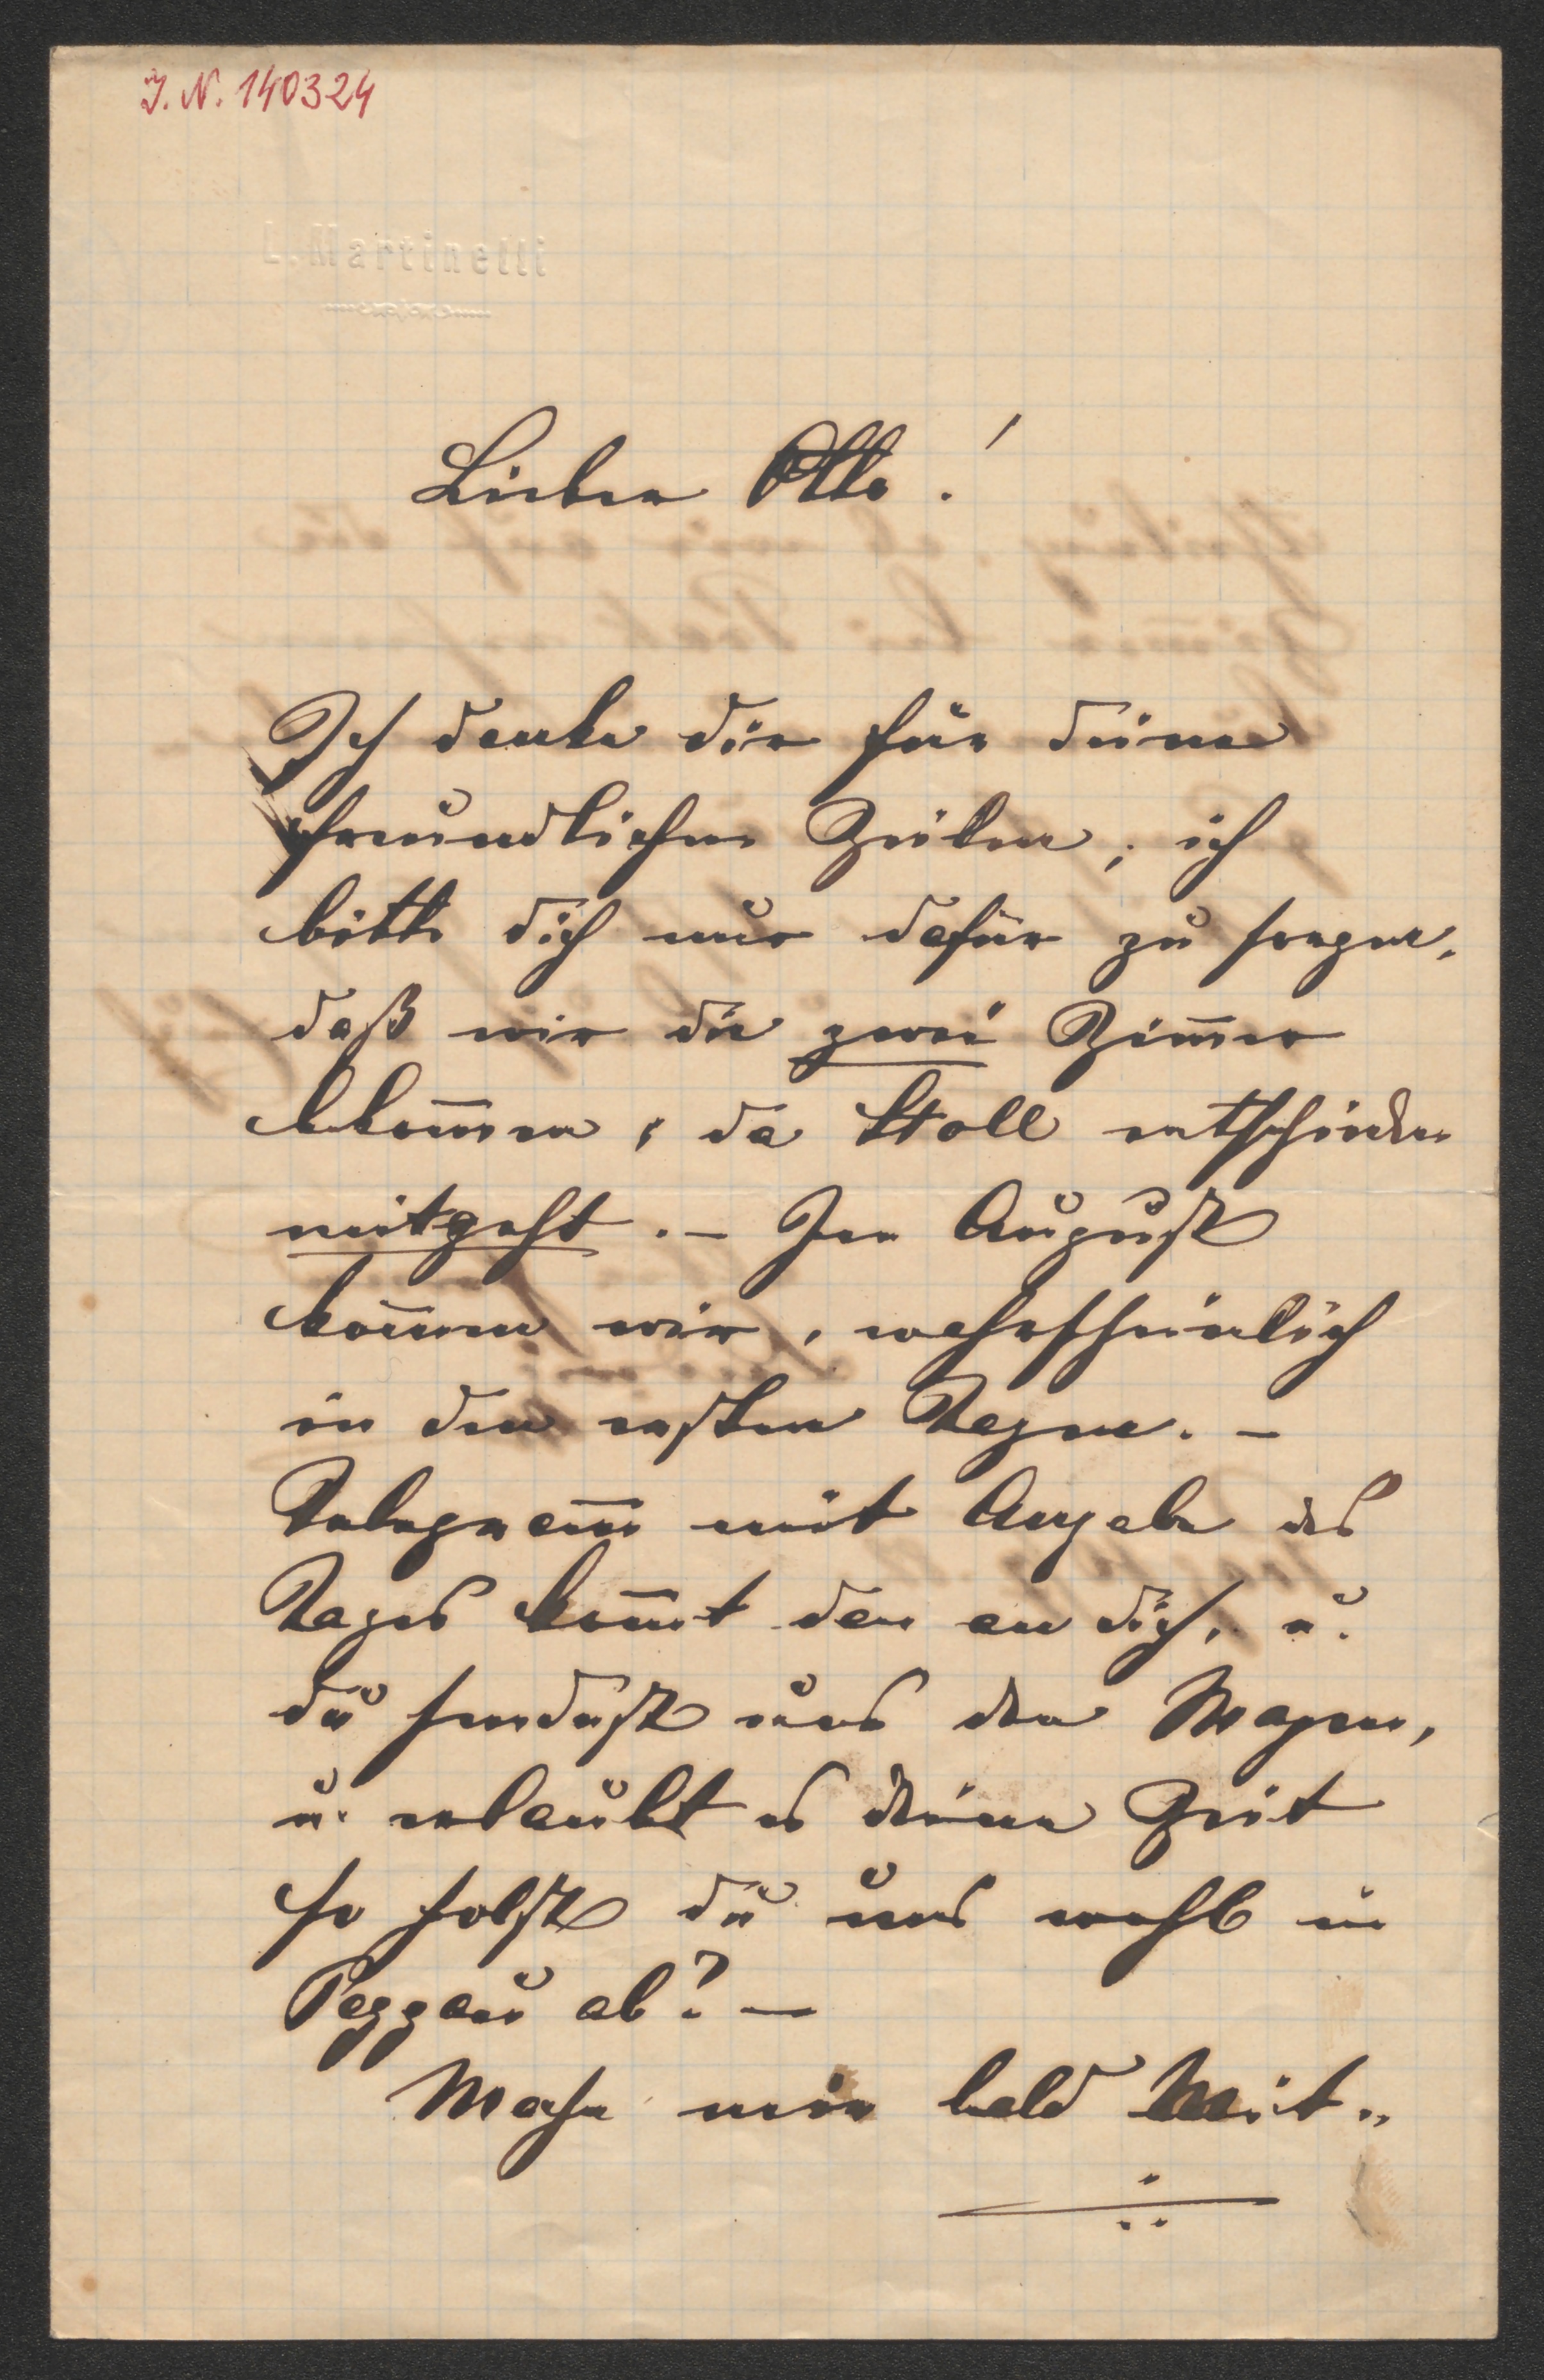 J. N. 140324
L. Martinelli
Lieber Otto!
Ich danke dir für deine
freundlichen Zeilen, ich
bitte dich nur dafür zu sorgen,
daß wir die zwei Zim̄er
bekom̄en, da Stoll entschieden
mitgeht. – Im August
kom̄en wir, wahrscheinlich
in den ersten Tagen. –
Telegram̄ mit Angabe des
Tages kom̄t dan an dich, u.
du sendest uns den Wagen,
u. erlaubt es deine Zeit
so holst du uns wohl in
Peggau ab? –
Mache mir bald Mit„